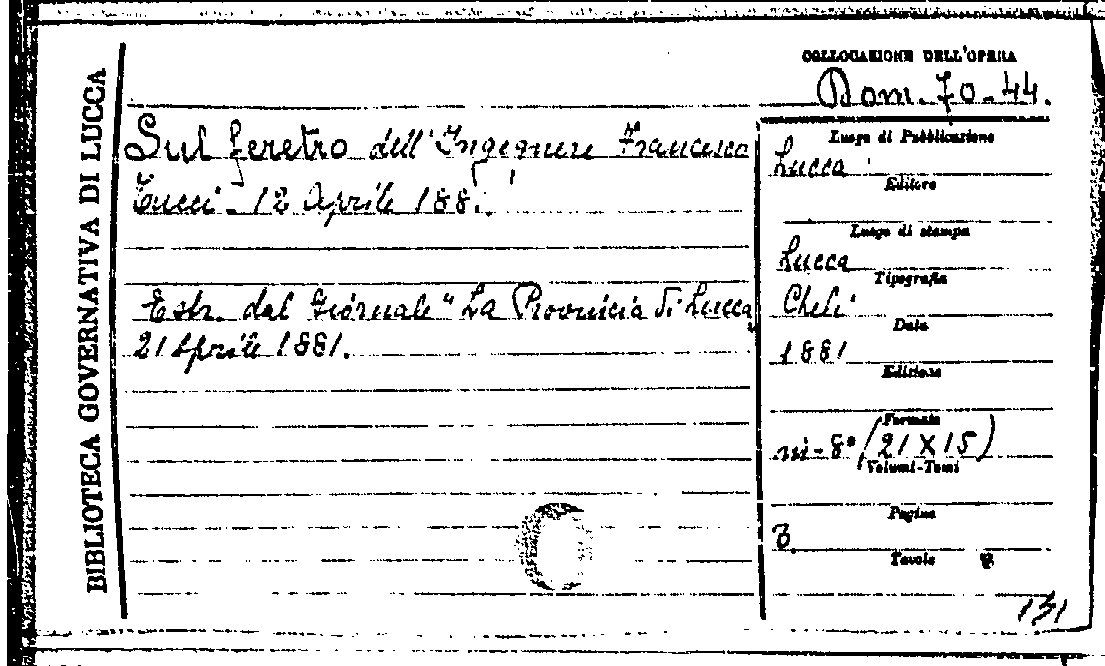 BIBLIOTECA GOVERNATIVA DI LUCCA
COLLOCAZIONE DELL'OPERA
Dom. 70-44.
Sul feretro dell'Ingegnere Francesco
Tucci - 12 Aprile 188
Estr. dal Giornale "La Provincia di Lucca,
21 Aprile 1881.
Luogo di Pubblicazione
Lucca
Editore
Luogo di stampa
Lucca
Tipografia
Cheli
Data
1881
Edizione
Formato
in-8° (21 X 15)
Volumi-Tomi
Pagine
Tavole
131